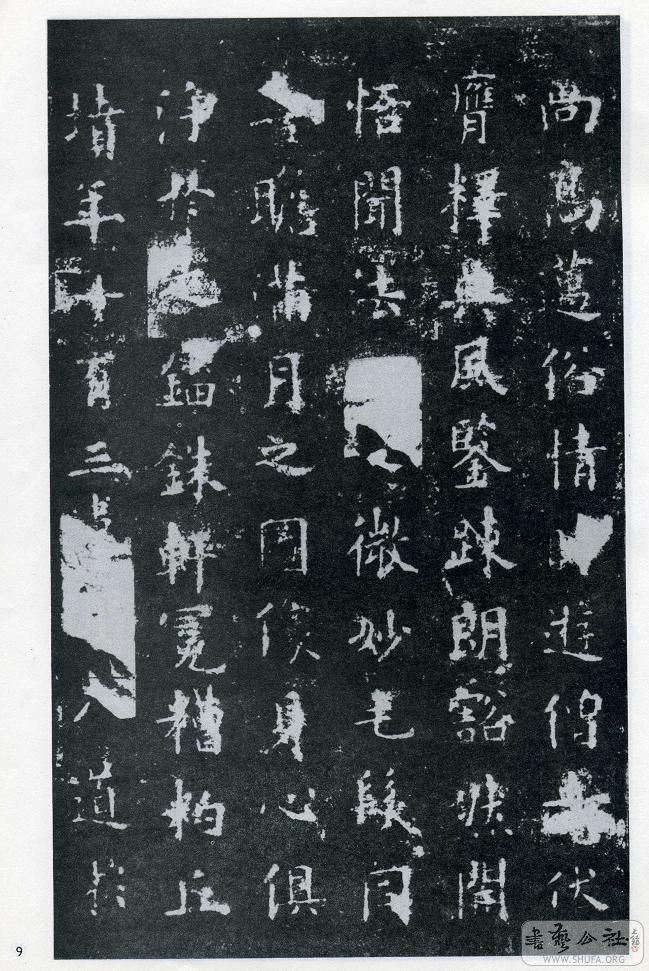 尚高邁俗情遊僧伏
膺釋典風鑒踈朗豁然開
悟聞法微妙毛
瞻滿月之身心俱
淨於錙銖軒冕糟粕丘
墳年有三道於
9
書藝公社
WWW.SHUFA.ORG